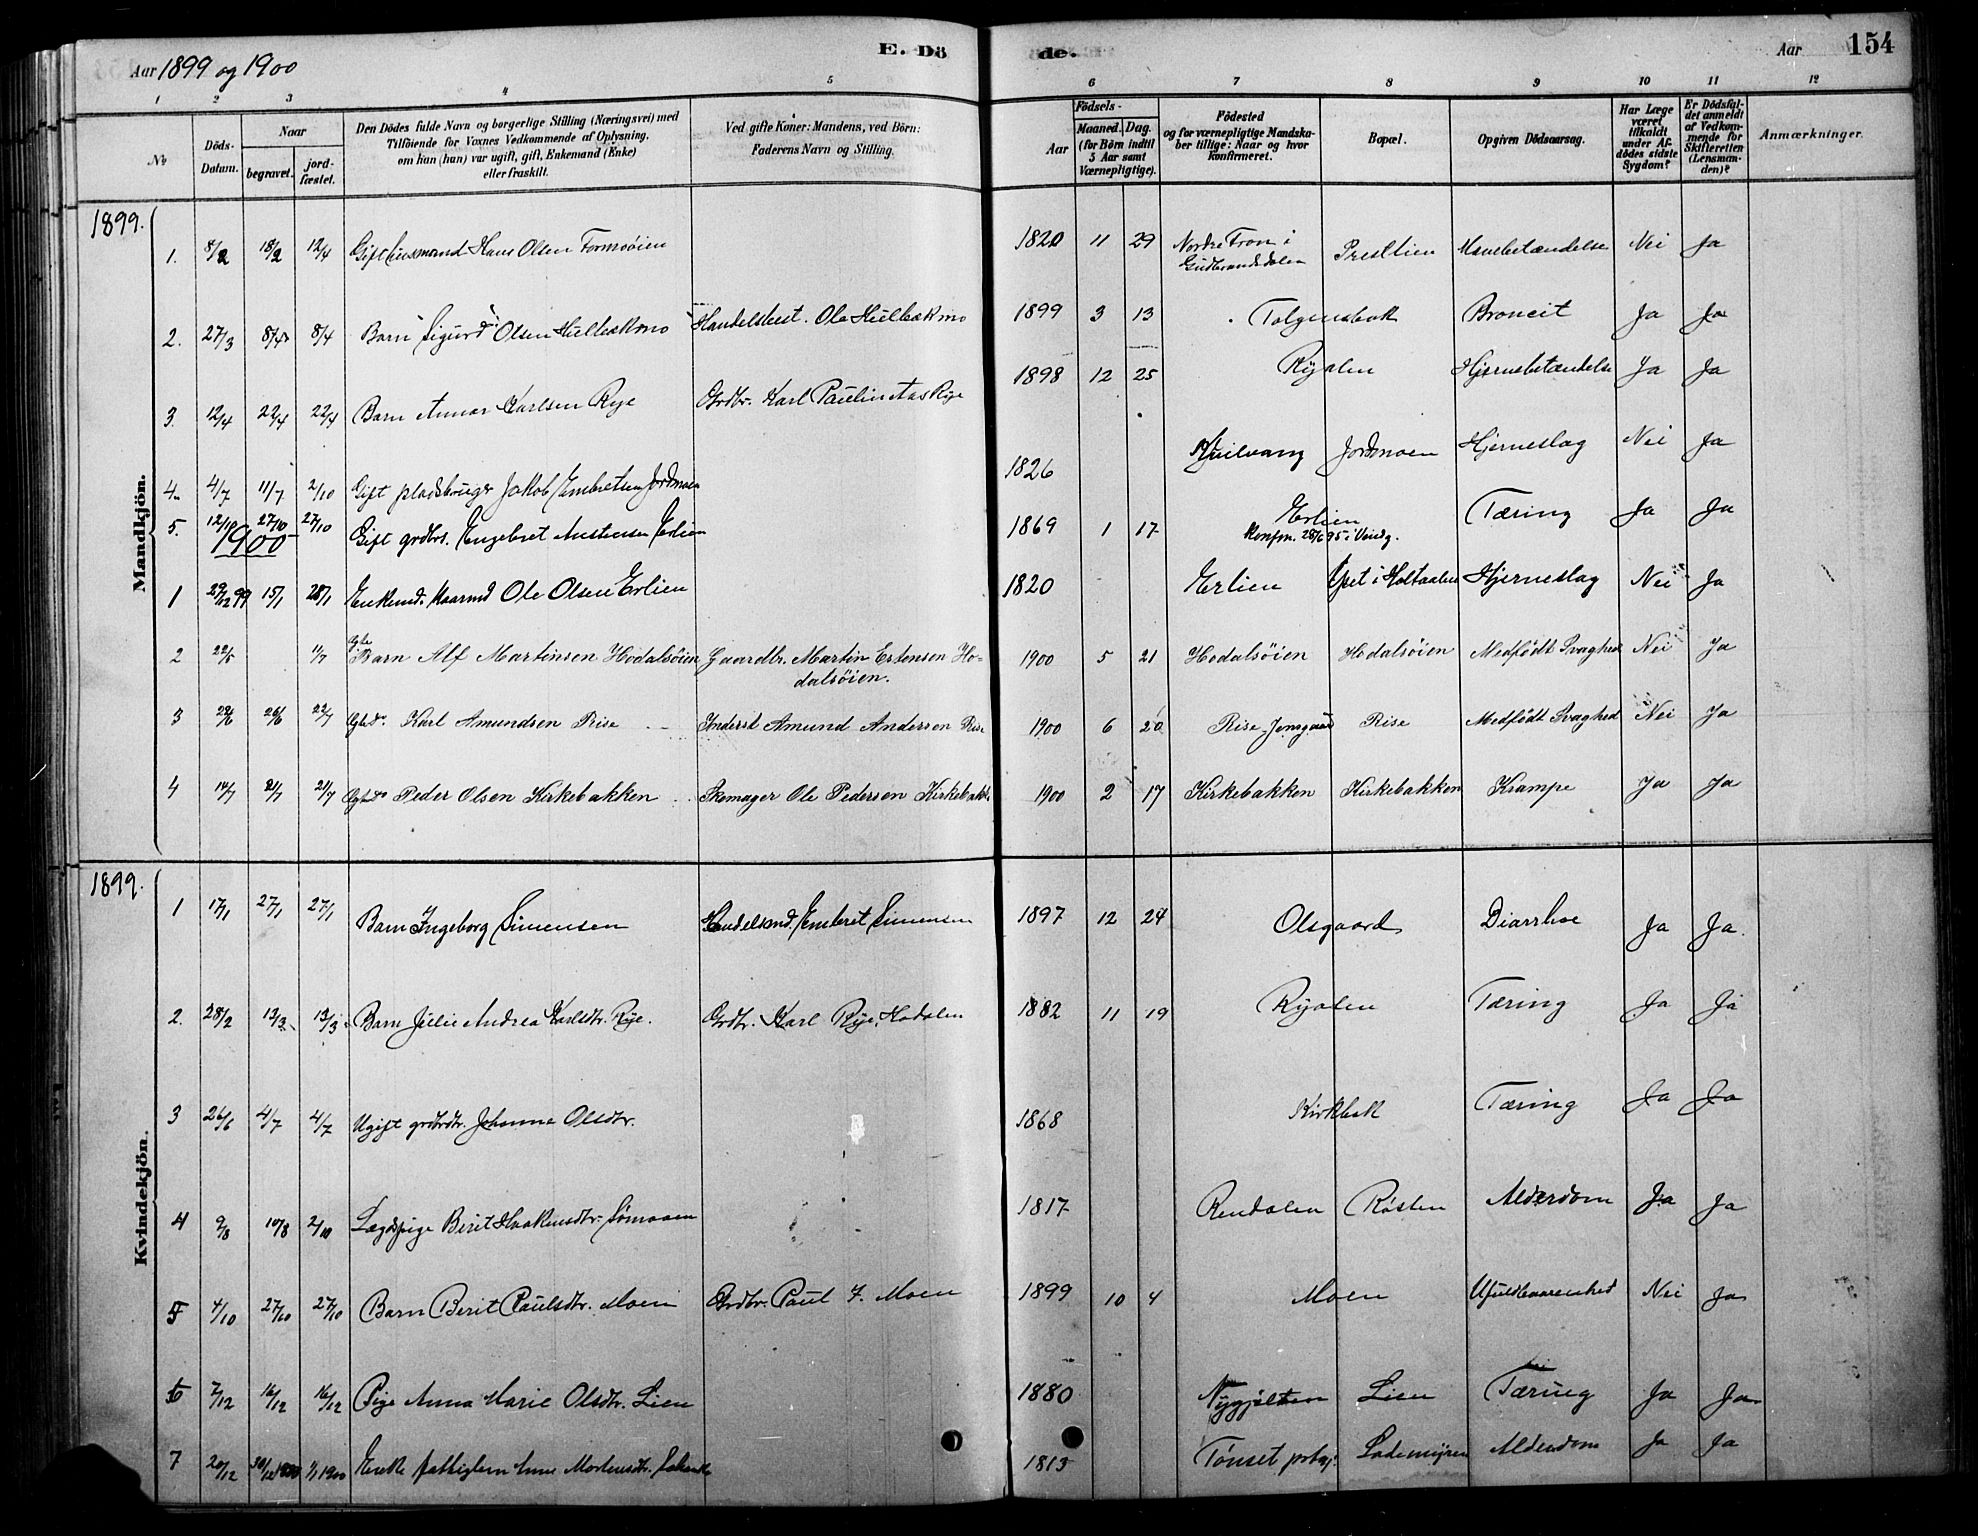 Aar 1899 og 1900 E. Dö de. Aar 154
1 2 3 4 5 6 7 8 9 10 11 12
No
Döds-Datum.
Naar
begravet.
jord-fæstet.
Den Dödes fulde Navn og borgerlige Stilling (Næringsvei) med
Tilföiende for Voxnes Vedkommende af Oplysning,
om hun (han) var ugift, gift, Enkemand (Enke)
eller fraskilt.
Ved gifte Koner: Mandens, ved Börn:
Faderens Navn og Stilling.
Födsels-
Aar
Maaned. Dag.
(for Börn indtil
5 Aar samt
Værnepligtige).
Födested
og for værnepligtige Mandska-
ber tillige: Naar og hvor
konfirmeret.
Bopæl.
Opgiven Dödsaarsag.
Har Læge
været
tilkaldt
under Af-
dödes sidste
Sygdom?
Er Dödsfal-
det anmeldt
af Vedkom-
mende for
Skifteretten
(Lensman-
den)?
Anmærkninger.
Mandkjön.
1899.
1. 8/2 18/2 12/4 Gift husmand Hans Olsen Formoöien 1820 11 29 Nordre Fron i Gudbrandsdalen Prestlien Mavebetændelse Nei Ja
2. 27/3 8/4 8/4 Barn "Sigurd" Olsen Hulbækmo Handelsbest. Ole Hulbækmo 1899 3 13 Tolgensbak Broncit Ja Ja
3. 12/4 22/4 22/4 Barn Annar Karlsen Rye Grdbr. Karl Paulin Aas Rye 1898 12 25 Ryalen Hjernebetændelse Ja Ja
4. 4/7 11/7 2/10 Gift pladsbruger Jakob Embretsen Jordmoen 1826 Kvilvang Jordmoen Hjerneslag Nei Ja
5. 12/10 27/10 27/10 Gift grdbr. Engebret Austensen Erlien 1869 1 17 Erlien Konfm. 28/6 95 i Vindg. Tæring Ja Ja
1900
1 29/12 99 15/1 28/1 Enkemd. Kaarmd Ole Olsen Erlien 1820 Erlien Ypet i Holtaalen Hjerneslag Nei Ja
2 22/5 1/7 Ægte Barn Alf Martinsen Hodalsöien Gaardbr. Martin Estensen Ho-
dalsöien. 1900 5 21 Hodalsöien Hodalsöien Medfödt Svaghed Nei Ja
3 22/6 26/6 22/7 Karl Amundsen Rise Inderst Amund Andersen Rise 1900 6 20 Rise, Jonsgaard Rise Medfödt Svaghed Nei Ja
4 14/7 21/7 21/7 Peder Olsen Kirkebakken Skomager Ole Pedersen Kirkebakk. 1900 2 17 Kirkebakken Kirkebakken Krampe Ja Ja
Kvindekjön.
1899.
1 17/1 27/1 27/1 Barn Ingeborg Simensen Handelsmd. Embret Simensen 1897 12 24 Olsgaard Diarrhoe Ja Ja.
2. 28/2 13/3 13/3 Barn Julie Andrea Karlsdtr. Rye. Grdbr. Karl Rye, Hodalen 1882 11 19 Ryalen Tæring Ja Ja
3 26/6 4/7 4/7 Ugift grdbrdtr. Johanne Olsdtr. 1868 Kirkbak Tæring Ja Ja
4 9/8 10/8 2/10 Lægdspige Berit Haakensdtr. Sömoaen 1817 Rendalen Røsten Alderdom Ja Ja
5 4/10 27/10 27/10 Barn Berit Paulsdtr. Moen Grdbr. Paul J. Moen 1899 10 4 Moen Ufuldbaarenhed Nei Ja
6 7/12 16/12 16/12 Pige Anna Marie Olsdtr. Lien 1880 Nygjelten Lien Tæring Ja Ja
7 20/12 30/12 1900 1/1 1900 Enke fattiglem Anne Mortensdtr. 1813 Tønset prstgj. Lademyren Alderdom Ja Ja